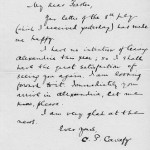 My dear Forster,
Your letter of the 5th July
(which I received yesterday) has made
me happy.
I have no intention of leaving
Alexandria this year; so I shall
have the great satisfaction of
seeing you again. I am looking
forward to it. Immediately you
arrive in Alexandria, let me
know, please.
I am very glad at the
news.
Ever yours,
C. P. Cavafy